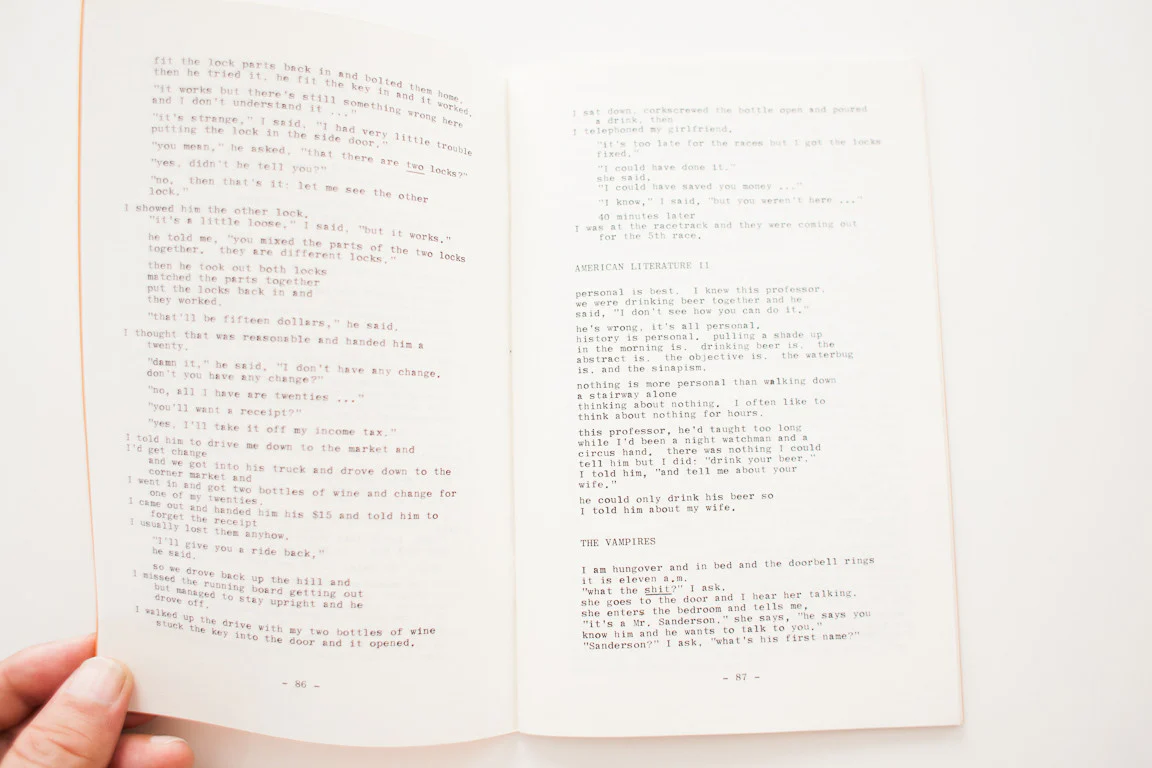 fit the lock parts back in and bolted them home.
then he tried it. he fit the key in and it worked.
"it works but there's still something wrong here
and I don't understand it ..."
"it's strange," I said. "I had very little trouble
putting the lock in the side door."
"you mean," he asked. "that there are two locks?"
"yes. didn't he tell you?"
"no. then that's it: let me see the other
lock."
I showed him the other lock.
"it's a little loose," I said, "but it works."
he told me, "you mixed the parts of the two locks
together. they are different locks."
then he took out both locks
matched the parts together
put the locks back in and
they worked.
"that'll be fifteen dollars," he said.
I thought that was reasonable and handed him a
twenty.
"damn it," he said, "I don't have any change.
don't you have any change?"
"no, all I have are twenties ..."
"you'll want a receipt?"
"yes. I'll take it off my income tax."
I told him to drive me down to the market and
I'd get change
and we got into his truck and drove down to the
corner market and
I went in and got two bottles of wine and change for
one of my twenties.
I came out and handed him his $15 and told him to
forget the receipt
I usually lost them anyhow.
"I'll give you a ride back,"
he said.
so we drove back up the hill and
I missed the running board getting out
but managed to stay upright and he
drove off.
I walked up the drive with my two bottles of wine
stuck the key into the door and it opened.
- 86 -
I sat down. corkscrewed the bottle open and poured
a drink, then
I telephoned my girlfriend.
"it's too late for the races but I got the locks
fixed."
"I could have done it."
she said,
"I could have saved you money ..."
"I know," I said, "but you weren't here ..."
40 minutes later
I was at the racetrack and they were coming out
for the 5th race.
AMERICAN LITERATURE II
personal is best. I knew this professor.
we were drinking beer together and he
said, "I don't see how you can do it."
he's wrong. it's all personal.
history is personal. pulling a shade up
in the morning is. drinking beer is. the
abstract is. the objective is. the waterbug
is. and the sinapism.
nothing is more personal than walking down
a stairway alone
thinking about nothing. I often like to
think about nothing for hours.
this professor, he'd taught too long
while I'd been a night watchman and a
circus hand. there was nothing I could
tell him but I did: "drink your beer,"
I told him, "and tell me about your
wife."
he could only drink his beer so
I told him about my wife.
THE VAMPIRES
I am hungover and in bed and the doorbell rings
it is eleven a.m.
"what the shit?" I ask.
she goes to the door and I hear her talking.
she enters the bedroom and tells me,
"it's a Mr. Sanderson." she says, "he says you
know him and he wants to talk to you."
"Sanderson?" I ask. "what's his first name?"
- 87 -